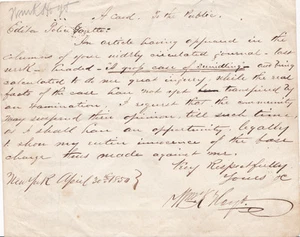 A Card. To the Public.
Editor Police Gazette:
An article having appeared in the
columns of your widely circulated journal last
week headed "A gross case of swindling" and being
calculated to do me great injury, while the real
facts of the case have not yet transpired by
an examination. I request that the community
may suspend their opinion till such time
as I shall have an opportunity legally
to show my entire innocence of the base
charge thus made against me.
Very Respectfully
Yours &c
New York April 30th
Wm